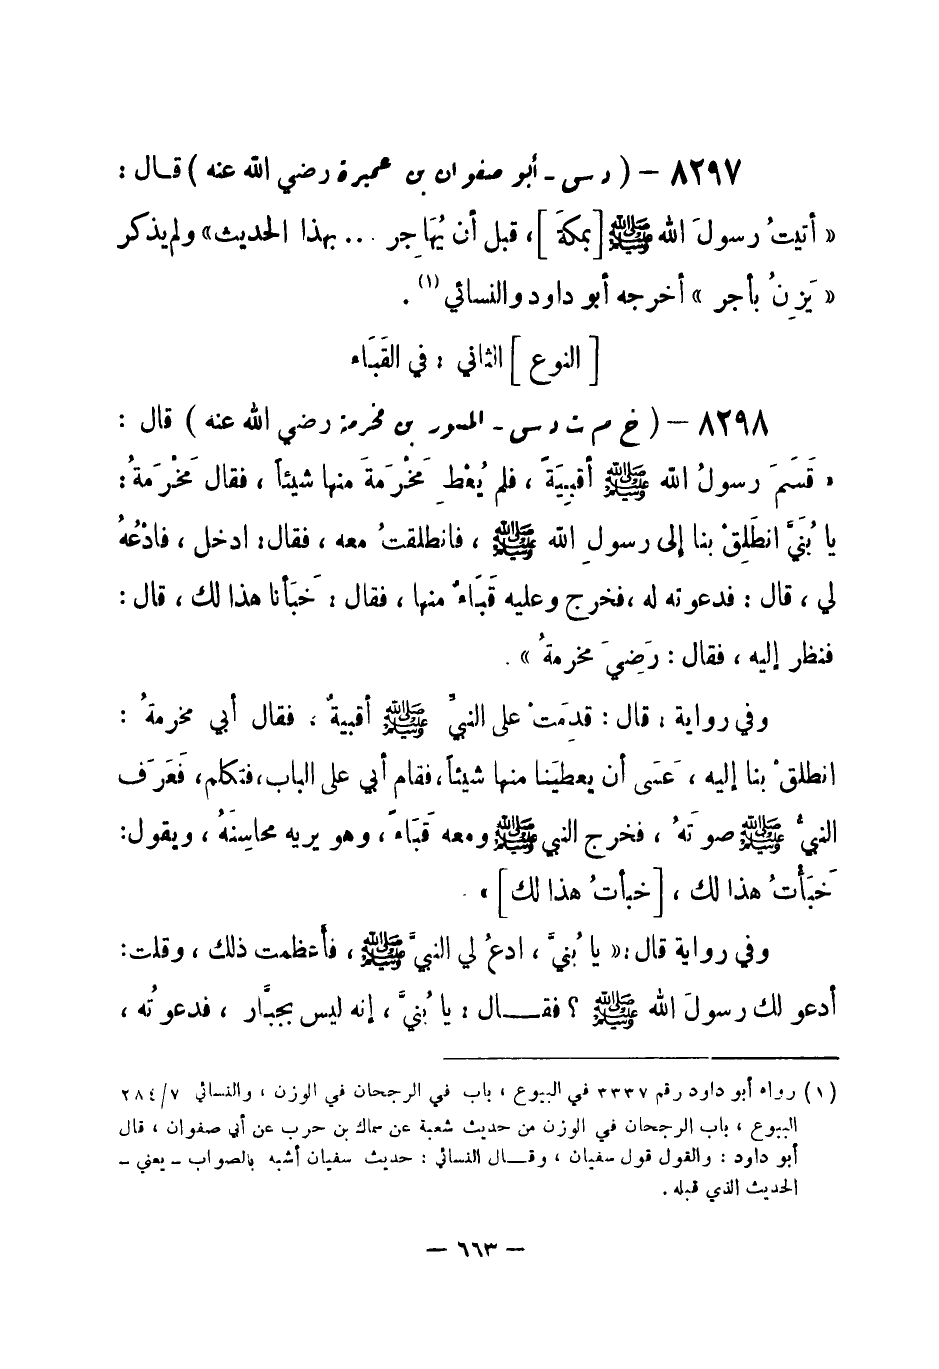 ٨٢٩٧ – ( د س - أبو صفوان بن عميرة رضي الله عنه ) قـال :
« أتيتُ رسولَ الله ﷺ [بمكةَ] ، قبل أن يُهَاجِر ... بهذا الحديث» ولم يذكر
« يَزِنُ بأجر » أخرجه أبو داود والنسائي (١) .
[ النوع ] الثاني : في القَبَاء
٨٢٩٨ – ( خ م ت د س - المسور بن مخرمة رضي الله عنه ) قال :
« قَسَمَ رسولُ الله ﷺ أقبِيَةً ، فلم يُعْطِ مَخْرَمَةَ منها شيئاً ، فقال مَخْرَمَةُ :
يا بُنَيَّ انطَلِقْ بنا إلى رسولِ الله ﷺ ، فانطلقتُ معه ، فقال : ادخل ، فادْعُهُ
لي ، قال : فدعوته له ، فخرج وعليه قَبَاءٌ منها ، فقال : خَبَأنا هذا لك ، قال :
فنظر إليه ، فقال : رَضِيَ مخرمةُ » .
وفي رواية ، قال : قدِمَتْ على النبيِّ ﷺ أقبيةٌ ، فقال أبي مخرمةُ :
انطلقْ بنا إليه ، عَسَى أن يعطيَنا منها شيئاً، فقام أبي على الباب، فتكلم، فَعَرَف
النبيُّ ﷺ صوتَهُ ، فخرج النبي ﷺ ومعه قَبَاءٌ ، وهو يريه محاسِنَهُ ، ويقول:
خَبَأْتُ هذا لك ، [خبأتُ هذا لك] » .
وفي رواية قال : « يا بُنيَّ ، ادعُ لي النبيَّ ﷺ ، فأعظمت ذلك ، وقلت:
أدعو لك رسولَ الله ﷺ ؟ فقــال : يا بُنيَّ ، إنه ليس بجبَّار ، فدعوتُه ،
(١) رواه أبو داود رقم ٣٣٣٧ في البيوع ، باب في الرجحان في الوزن ، والنسائي ٢٨٤/٧
البيوع ، باب الرجحان في الوزن من حديث شعبة عن سماك بن حرب عن أبي صفوان ، قال
أبو داود : والقول قول سفيان ، وقــال النسائي : حديث سفيان أشبه بالصواب - يعني -
الحديث الذي قبله .
– ٦٦٣ –